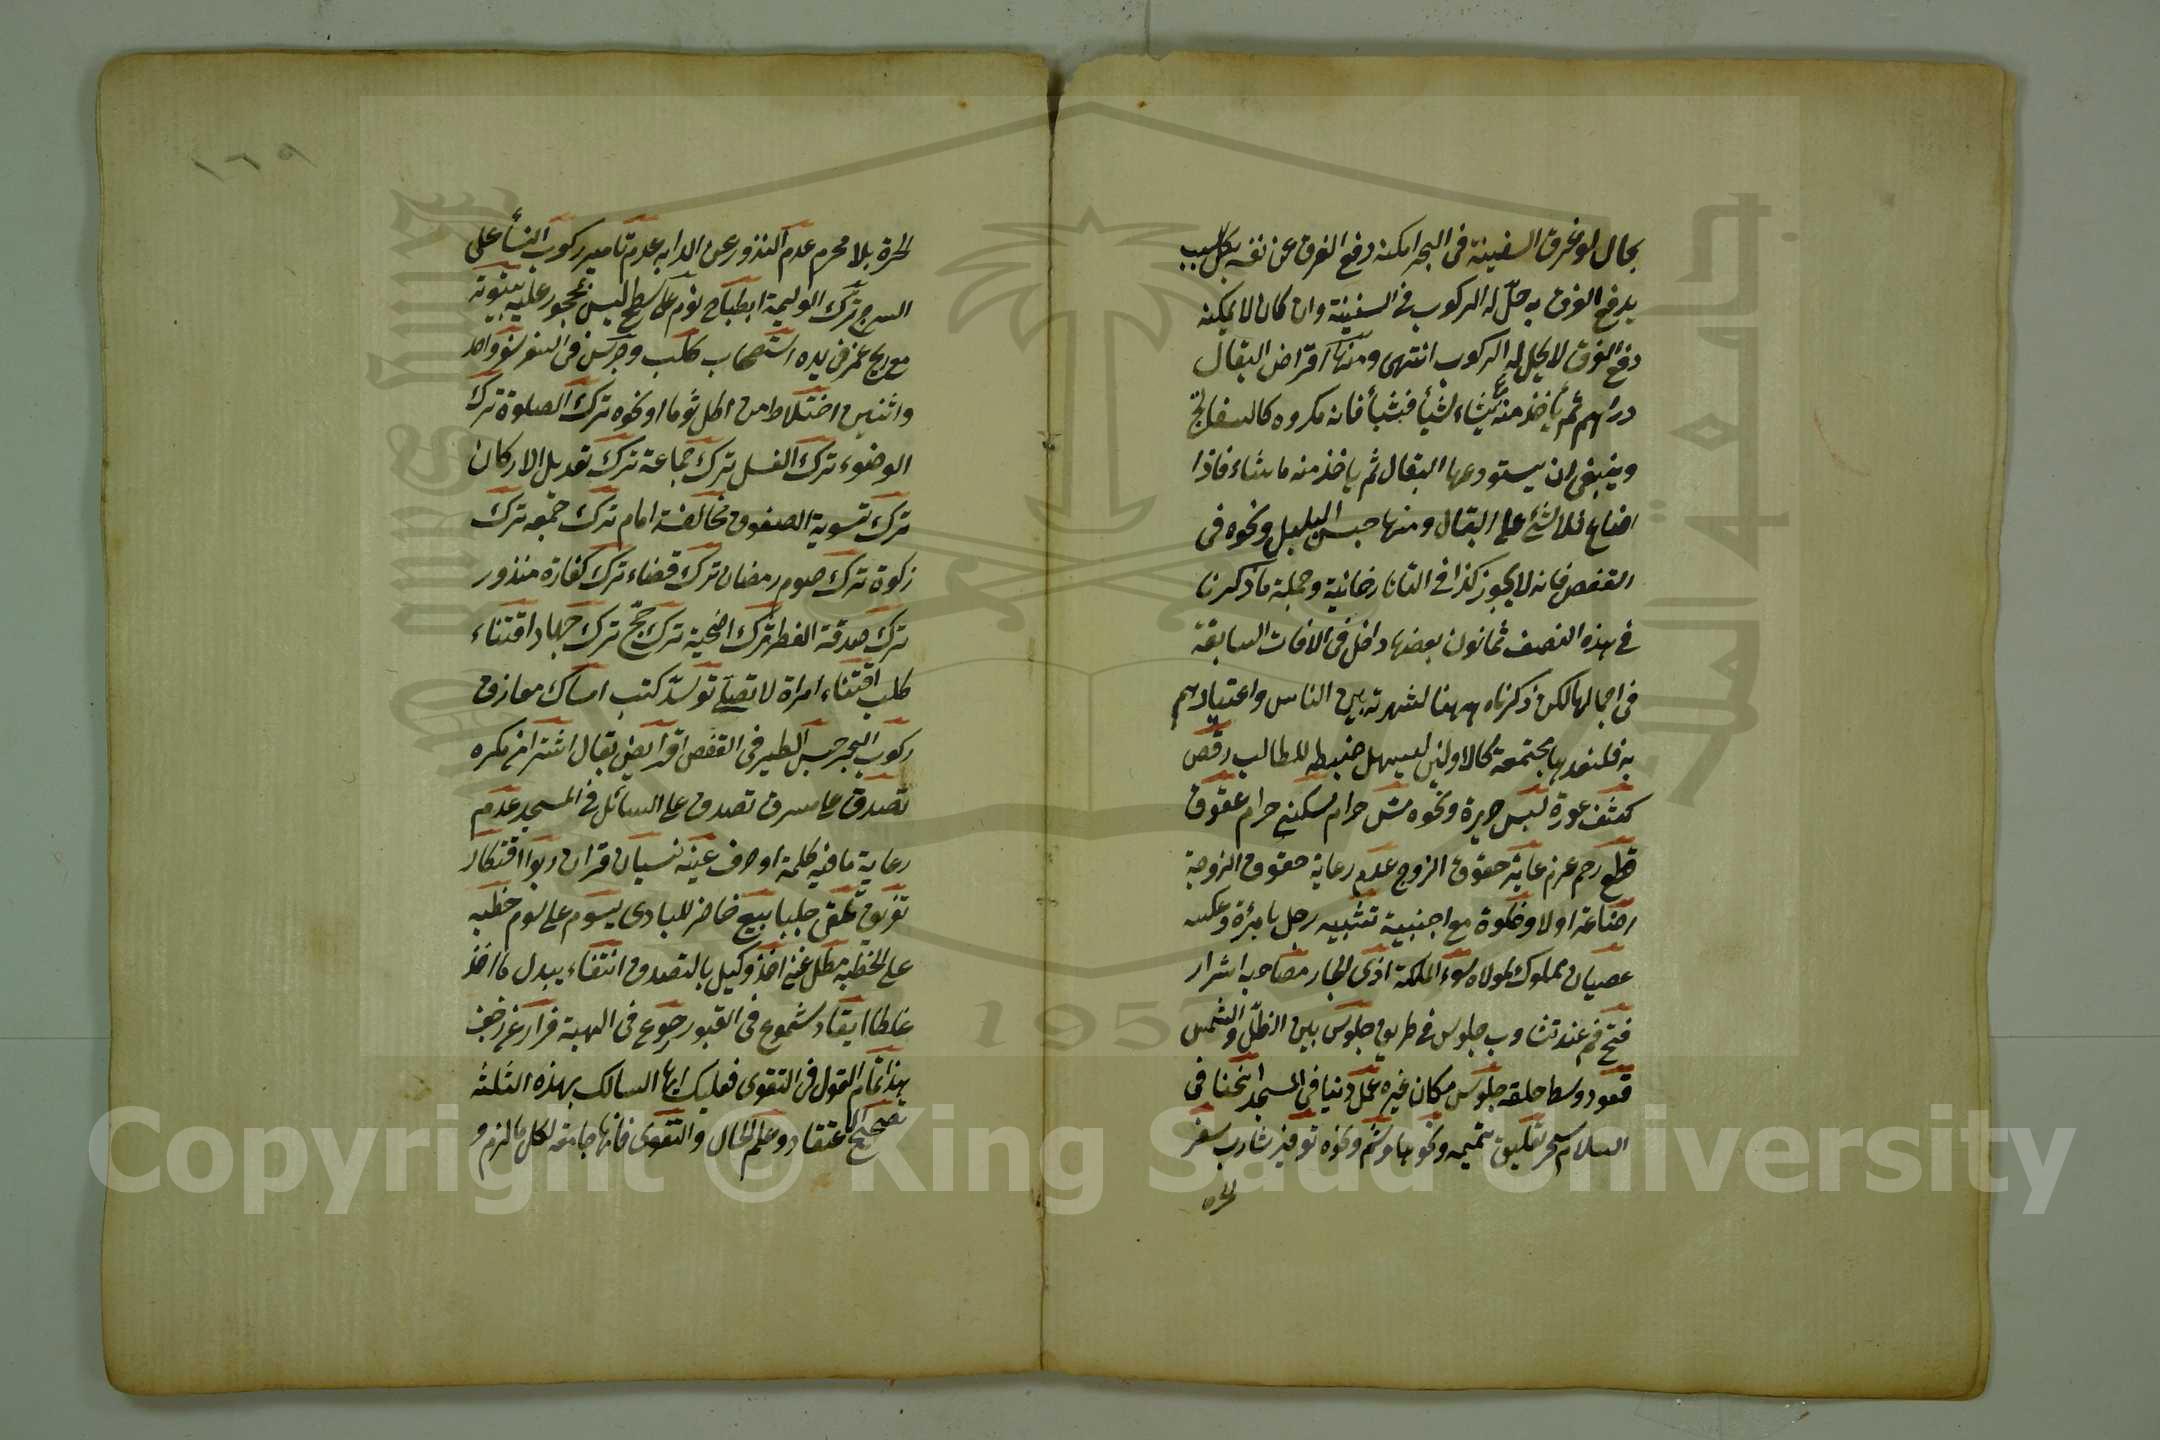 بحال لو غرق السفينة فى البحر امكنه دفع الغرق عن نفسه بكل سبب
يدفع الغرق به حلّ له الركوب فى السفينة وان كان لا يمكنه
دفع الغرق لا يحل له الركوب انتهى ومنها اقراض البقال
دراهم ثم يأخذ منه ما يشاء شيأ فشيأ فانه مكروه كالسفاتج
وينبغى ان يستودعها البقال ثم ياخذ منه ما شاء فاذا
اضاع فلا شئ على البقال ومنها حبس البلبل ونحوه فى
القفص فانه لا يجوز كذا فى التاتارخانية وجملة ما ذكرنا
فى هذه الصنف ثمانون بعضها داخل فى الآفات السابقة
فى اجمالها لكن ذكرناه ههنا لشهرته بين الناس واعتيادهم
به فلنعدها مجتمعة كالاولين ليسهل ضبطه للطالب رقص
كشف عورة لبس حرير ونحوه مس حرام سكنى حرام عقوق
قطع رحم عدم رعاية حقوق الزوج عدم رعاية حقوق الزوجة
اضاعة اولاد خلوة مع اجنبية تشبيه رجل بامرأة وعكسه
عصيان مملوك لمولاه سوء الملكة اذى الجار مصاحبة اشرار
فتح فم عند تثاوب جلوس فى طريق جلوس بين الظلّ والشمس
قعود وسط حلقه جلوس مكان غيره عمل دنيا فى المسجد انحنا فى
السلام سحر تعليق تميمه ونحوها وشم ونحوه توفير شارب سفر
الحره
١٦٩
الحرة بلا محرم عدم النزول عن الدابه عدم تامير ركوب النسأ على
السرج ترك الوليمة انبطاح نوم على سطح ليس بمحجور عليه بيتوتة
مع ريح غمر فى يده استصحاب كلب وجرس فى السفر سفر واحد
واثنين اختلاط من اكل ثوما او نحوه ترك الصلوة ترك
الوضوء ترك الغسل ترك جماعة ترك تعديل الاركان
ترك تسوية الصفوف مخالفة امام ترك جمعه ترك
زكوة ترك صوم رمضان ترك قضاء ترك كفارة منذور
ترك صدقة الفطر ترك اضحية ترك حج ترك جهاد اقتناء
كلب اقتناء امراة لا تصلى توسد كتب امساك معازف
ركوب البحر حبس الطير فى القفص اقراض بقال اشترا من مكره
تصدق على مسرف تصدق على السائل فى المسجد عدم
رعاية ما فيه كلمة او حرف عينه نسيان قران ربوا احتكار
تفريق تلقى جلب بيع حاضر للبادى سوم على سوم خطبه
على الخطبه مطل غنى اخذ وكيل بالتصدق انتفاء ببدل ما اخذ
غلطا ايقاد شموع فى القبور رجوع فى الهبة فرار عن زحف
هذا تمام القول فى التقوى فعليك ايها السالك بهذه الثلثة
تصحيح الاعتقاد وعلم الحال والتقوى فانها جامعة لكل ما لزم و
Copyright © King Saud University
1957